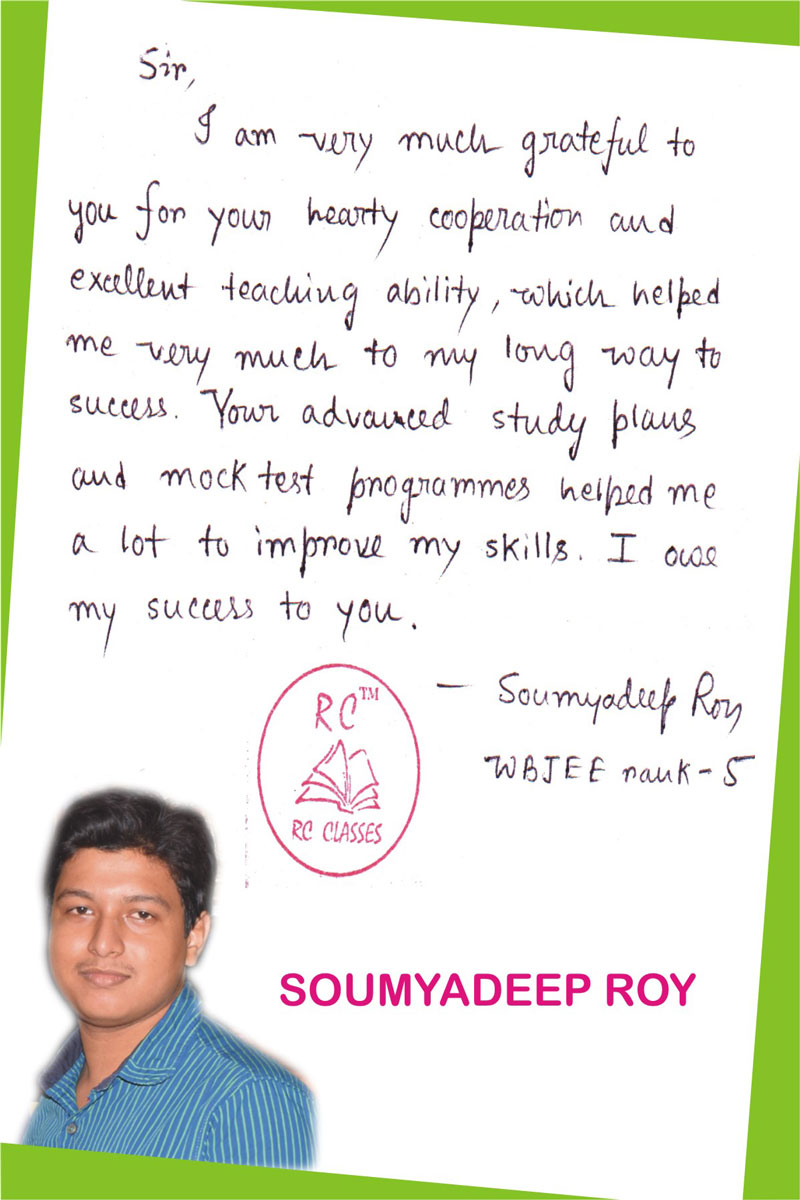 Sir,
I am very much grateful to
you for your hearty cooperation and
excellent teaching ability, which helped
me very much to my long way to
success. Your advanced study plans
and mock test programmes helped me
a lot to improve my skills. I owe
my success to you.
— Soumyadeep Roy
WBJEE rank - 5
RC™
RC CLASSES
SOUMYADEEP ROY